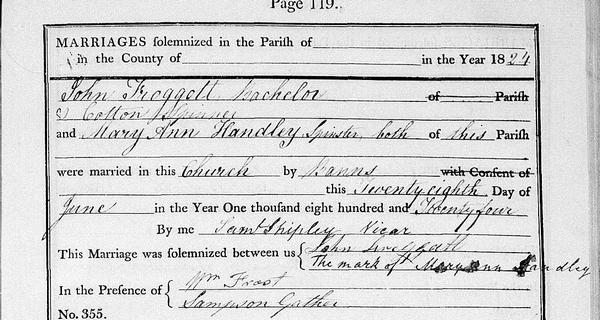 Page 119.
MARRIAGES solemnized in the Parish of
in the County of in the Year 1824
John Froggott Bachelor of Parish
& Cotton Spinner
and Mary Ann Handley Spinster both of this Parish
were married in this Church by Banns with Consent of
this Twenty eighth Day of
June in the Year One thousand eight hundred and Twenty four
By me Saml Shipley Vicar
This Marriage was solemnized between us { John Froggatt
The mark of Mary Ann Handley
In the Presence of { Wm Frost
Sampson
No. 355.